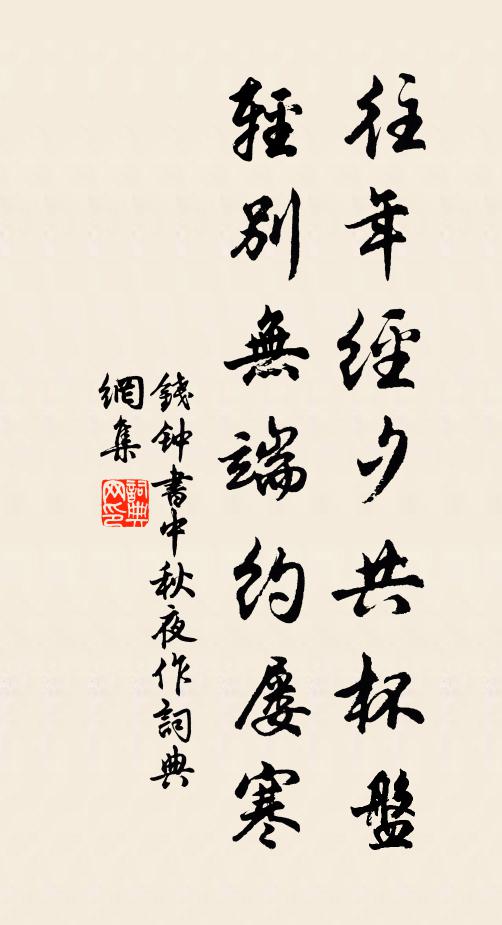 往年經夕共杯盤
輕別無端約屢寒
錢鈡書中秋夜作詞典
網集
詞典
网印